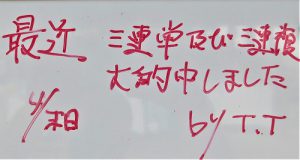 最近 三連単及び三連複
大的中しました
4/末日 by T.T